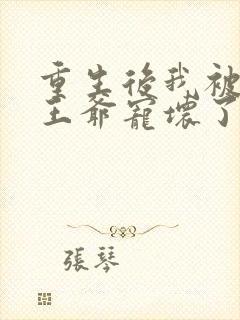 重生後我被
王爺寵壞了
張琴